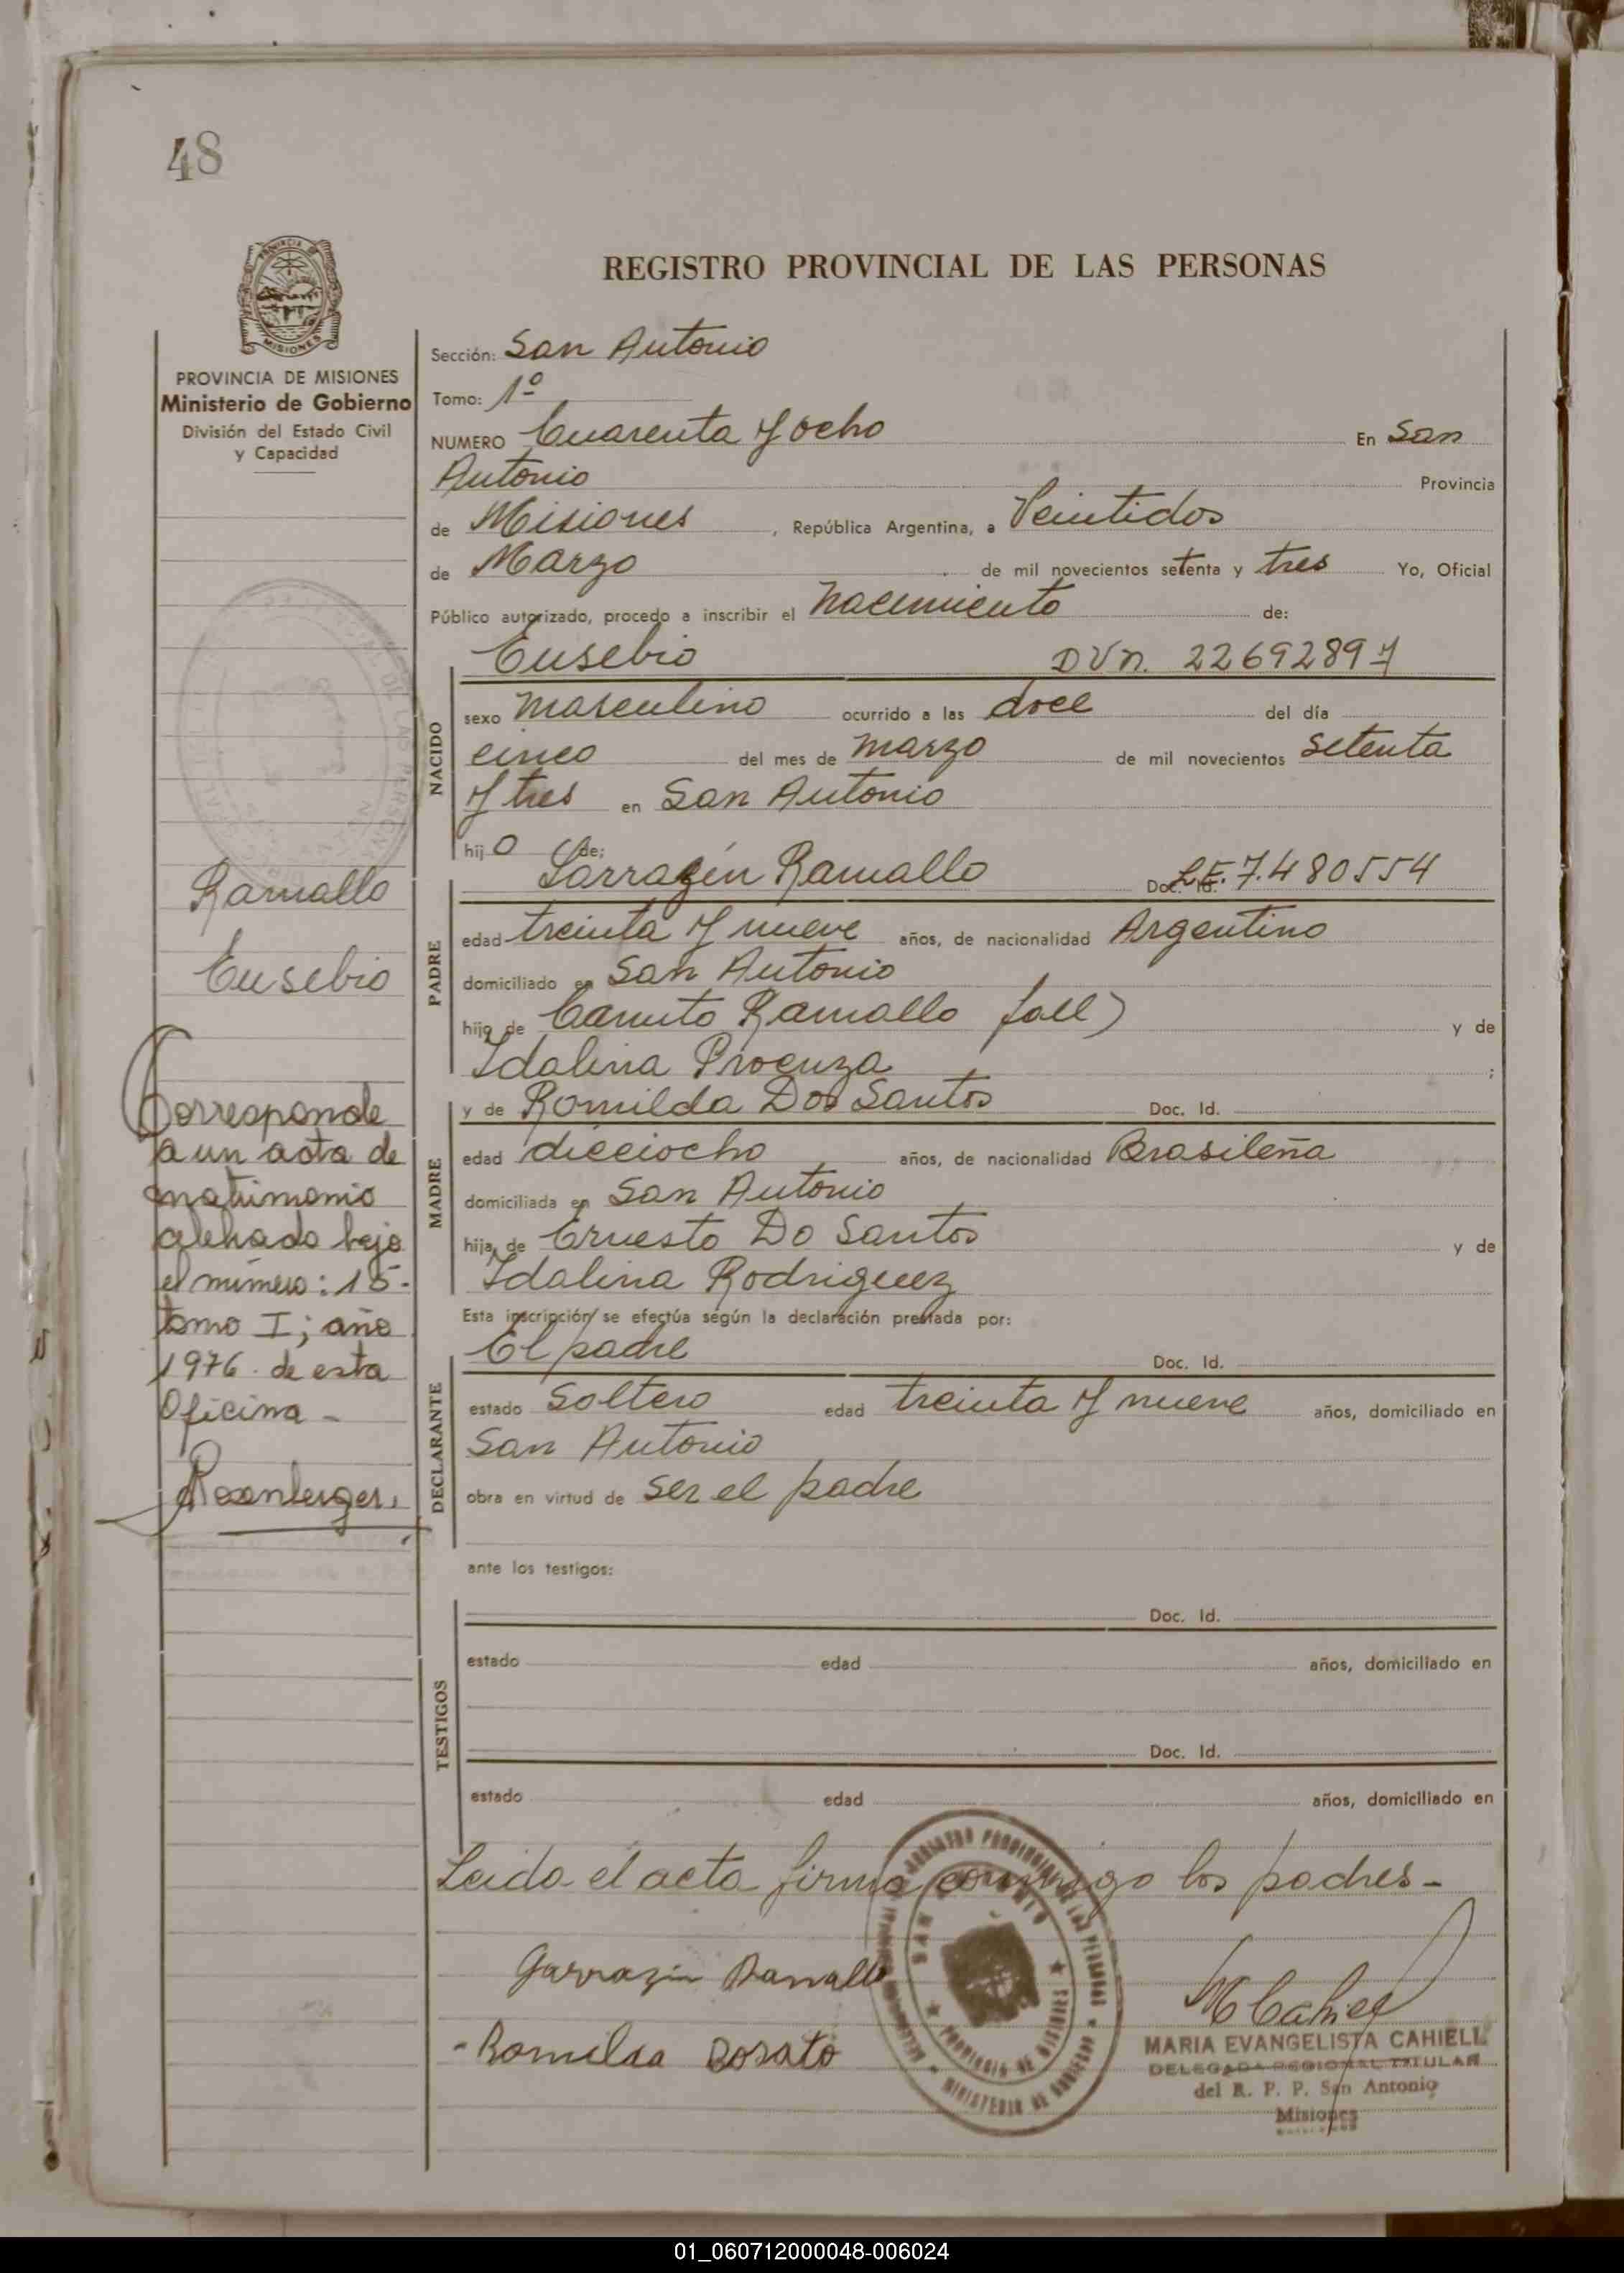 48
REGISTRO PROVINCIAL DE LAS PERSONAS
MISIONES
PROVINCIA DE MISIONES
Ministerio de Gobierno
División del Estado Civil
y Capacidad
Sección: San Antonio
Tomo: 1º
NUMERO Cuarenta y ocho En San
Antonio Provincia
de Misiones, República Argentina, a Veintidos
de Marzo de mil novecientos setenta y tres Yo, Oficial
Público autorizado, procedo a inscribir el nacimiento de:
Eusebio
NACIDO
sexo masculino ocurrido a las doce del día
cinco del mes de marzo de mil novecientos setenta
y tres en San Antonio
hijo de:
Ramallo
Eusebio
PADRE
Sarrazin Ramallo Doc. Id. L.E. 7.480554
edad treinta y nueve años, de nacionalidad Argentino
domiciliado en San Antonio
hijo de Canuto Ramallo fall) y de
Idalina Proenza;
MADRE
y de Romilda Dos Santos Doc. Id.
edad dieciocho años, de nacionalidad Brasileña
domiciliada en San Antonio
hija de Ernesto Do Santos y de
Idalina Rodriguez
Corresponde
a un acta de
matrimonio
labrado bajo
el número: 15-
tomo I; año
1976. de esta
Oficina -
Esta inscripción se efectúa según la declaración prestada por:
DECLARANTE
El padre Doc. Id.
estado Soltero edad treinta y nueve años, domiciliado en
San Antonio
obra en virtud de ser el padre
ante los testigos:
TESTIGOS
Doc. Id.
estado edad años, domiciliado en
Doc. Id.
estado edad años, domiciliado en
Leida el acta firma conmigo los padres-
Garrazin Ramallo
Romilda Dosato
MARIA EVANGELISTA CAHIELL
DELEGADA REGIONAL TITULAR
del R. P. P. San Antonio
Misiones
01_060712000048-006024